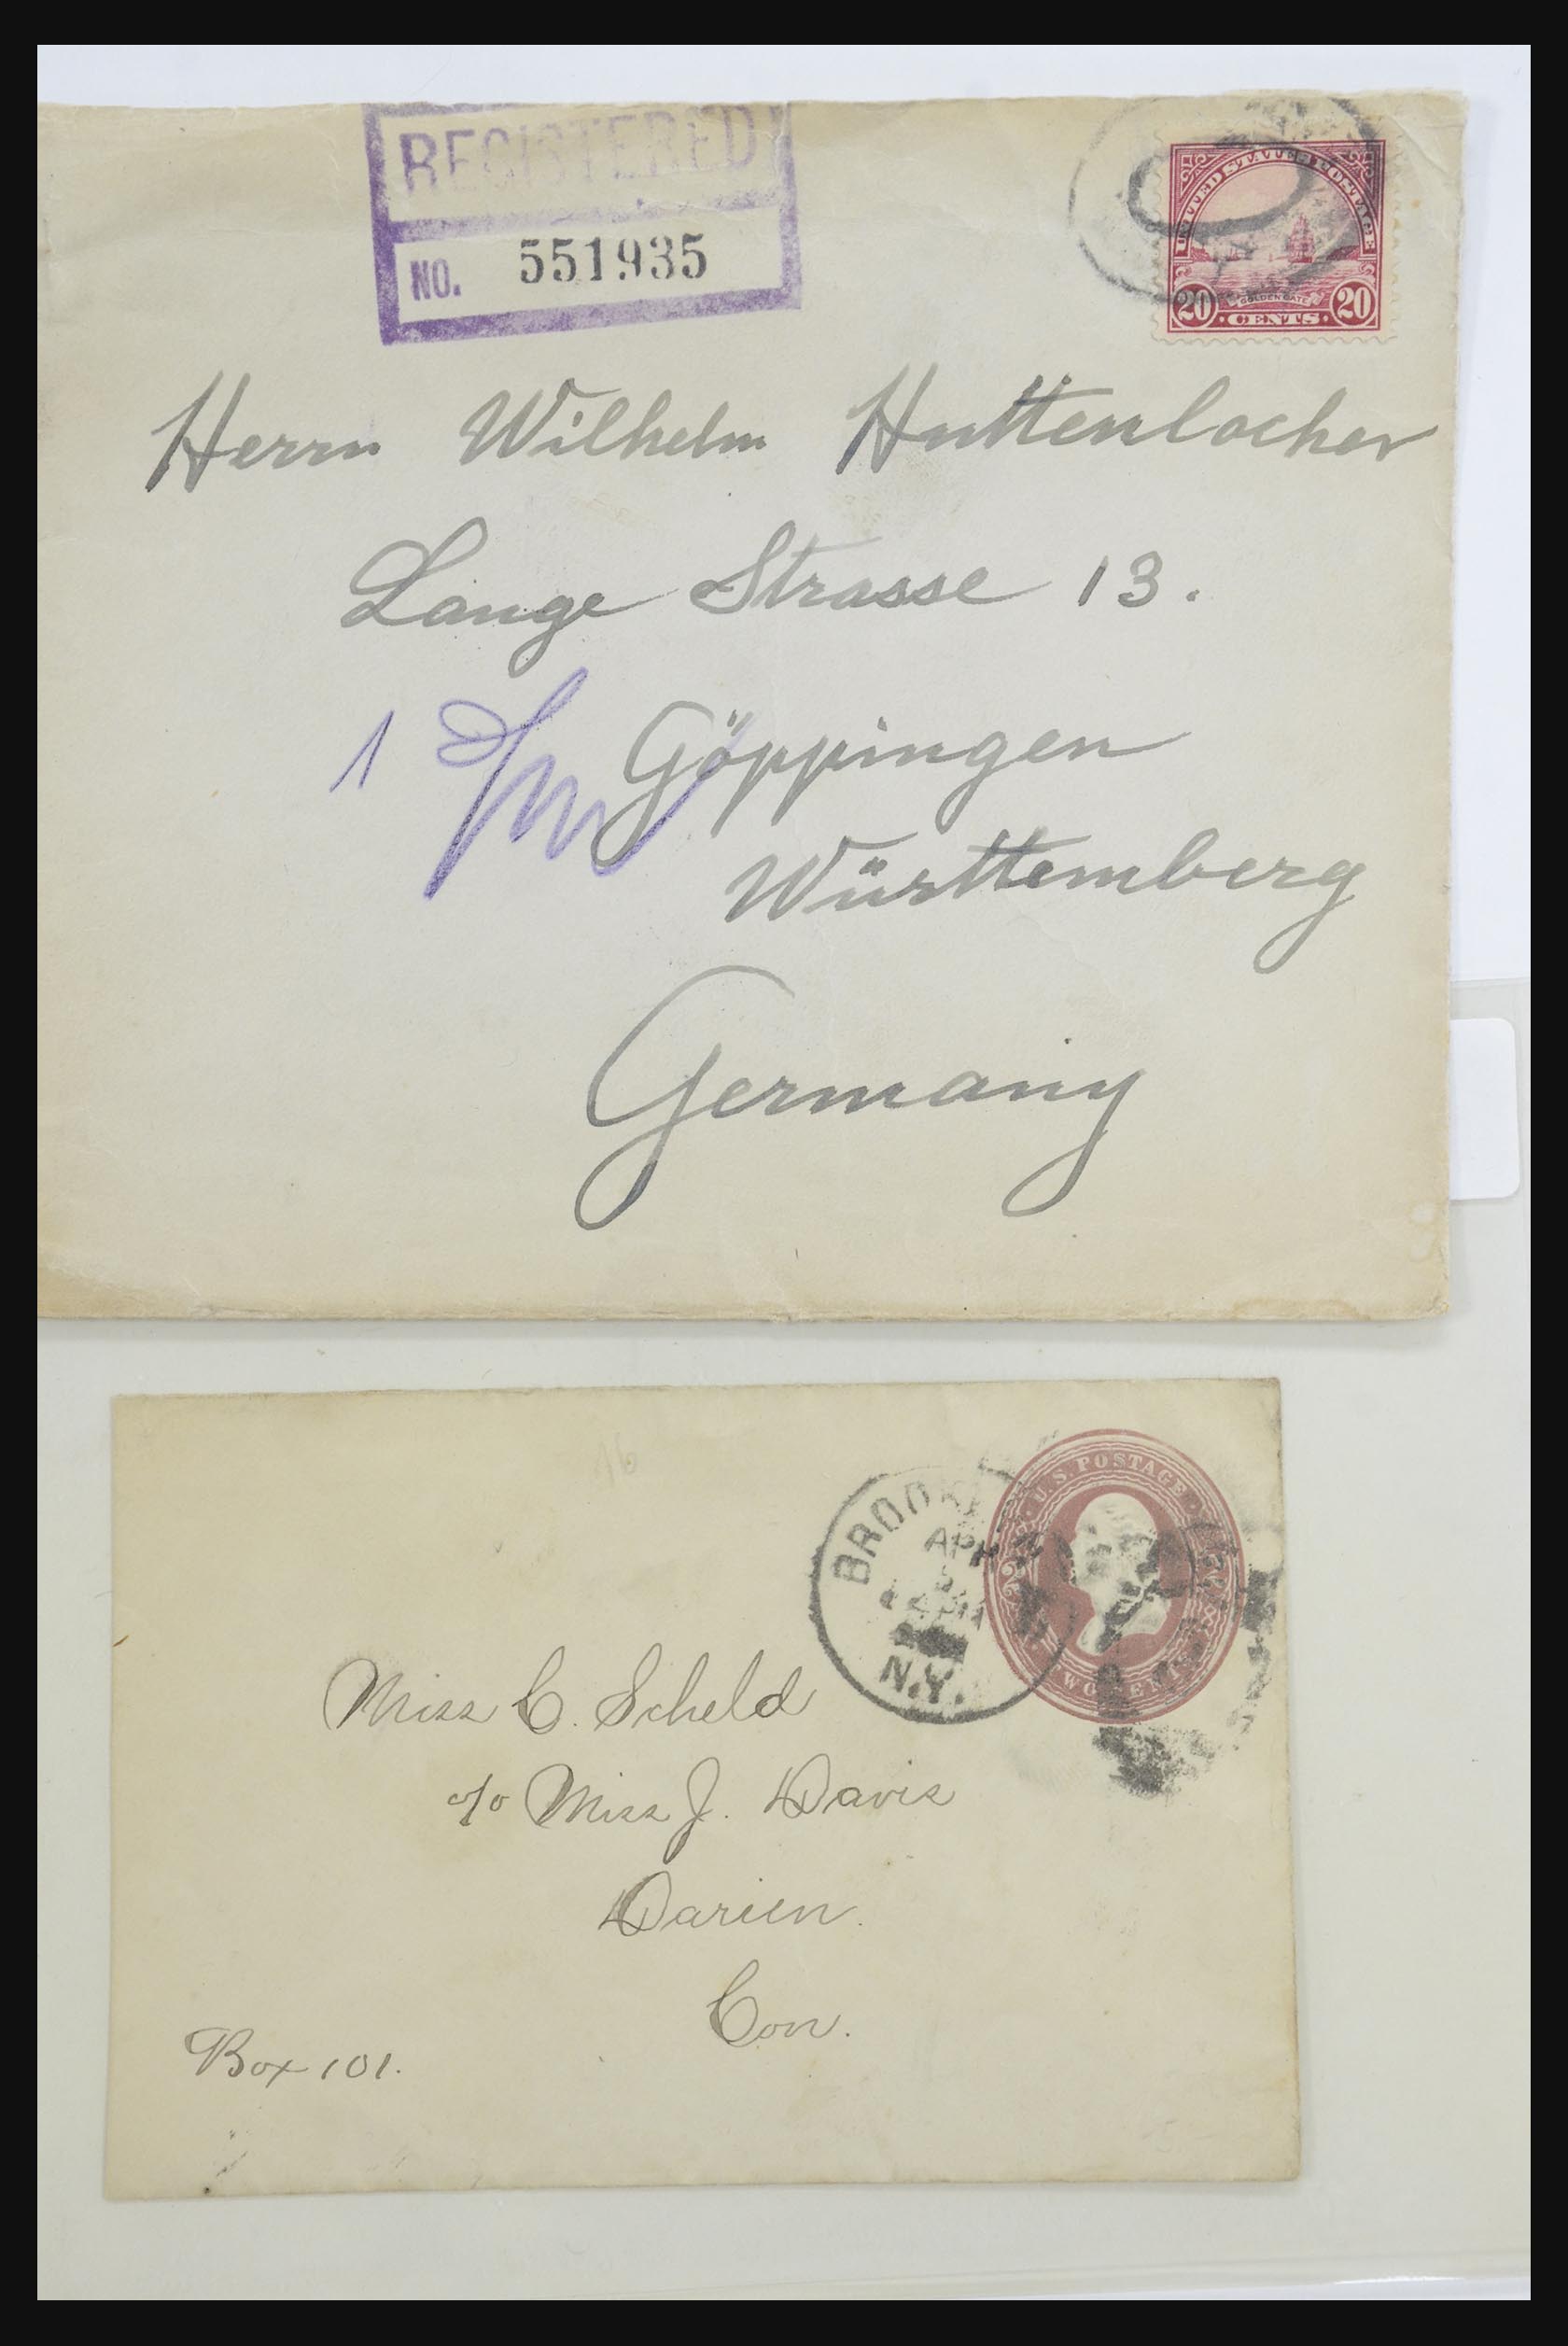 REGISTERED
NO. 551935
UNITED STATES POSTAGE
GOLDEN GATE
20 CENTS 20
Herrn Wilhelm Huttenlocher
Lange Strasse 13.
1
Göppingen
Württemberg
Germany
U.S. POSTAGE
TWO CENTS
APR
N.Y.
Miss C. Scheld
c/o Miss J. Davis
Darien.
Con.
Box 101.